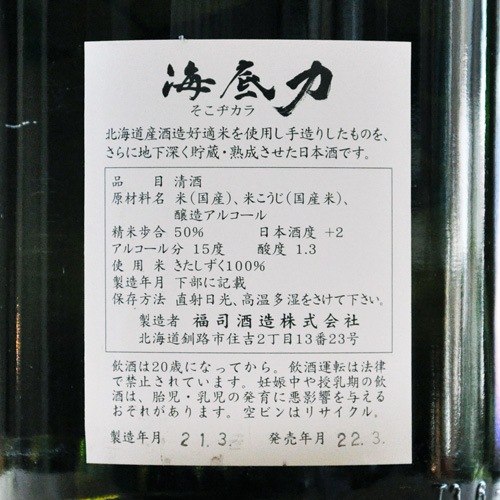 海底力
そこヂカラ
北海道産酒造好適米を使用し手造りしたものを、
さらに地下深く貯蔵・熟成させた日本酒です。
品目 清酒
原材料名 米(国産)、米こうじ(国産米)、
醸造アルコール
精米歩合 50% 日本酒度 +2
アルコール分 15度 酸度 1.3
使用米 きたしずく100%
製造年月 下部に記載
保存方法 直射日光、高温多湿をさけて下さい。
製造者 福司酒造株式会社
北海道釧路市住吉2丁目13番23号
飲酒は20歳になってから。飲酒運転は法律
で禁止されています。妊娠中や授乳期の飲
酒は、胎児・乳児の発育に悪影響を与える
おそれがあります。空ビンはリサイクル。
製造年月 21.3 発売年月 22.3.